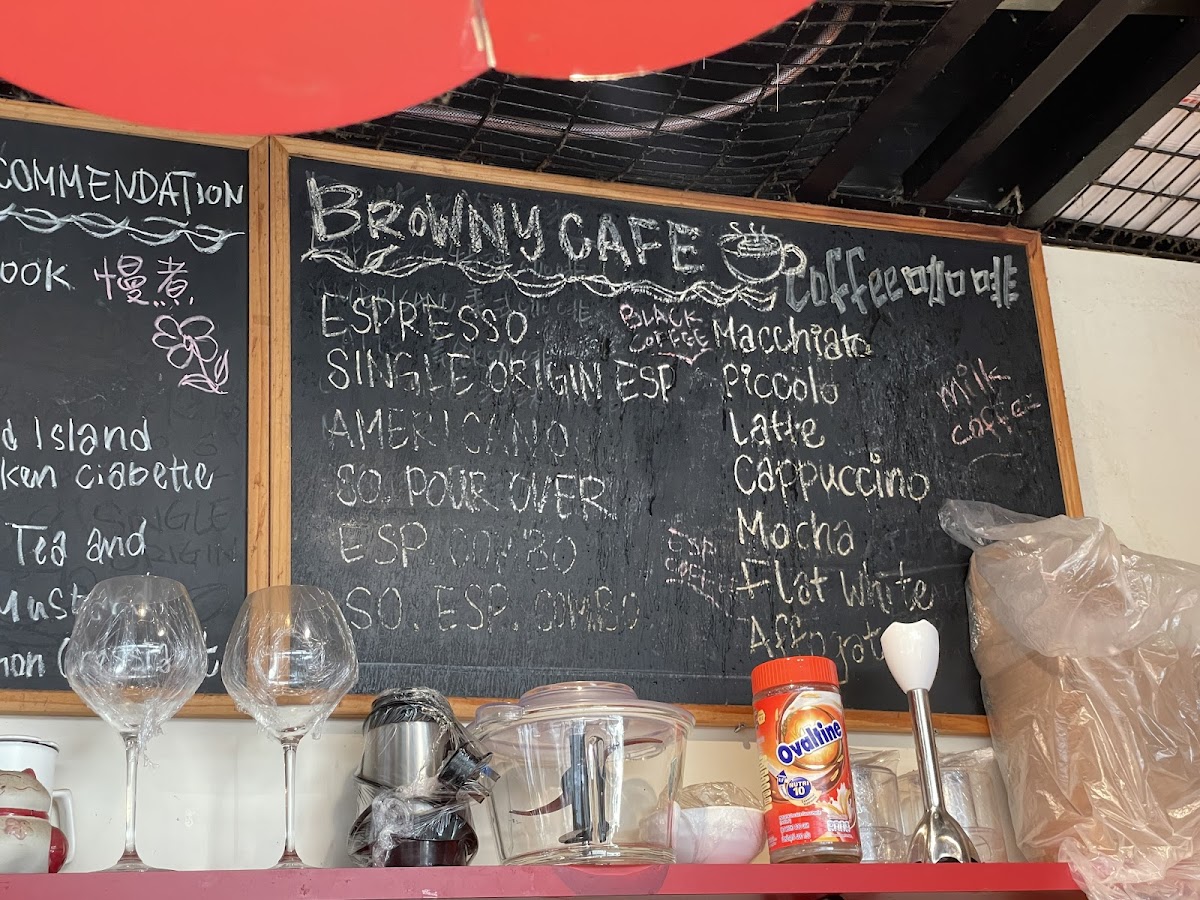 COMMENDATION
ook 慢煮
d Island
ken ciabette
Tea and
Must
BROWNY CAFE
Coffee 咖啡
ESPRESSO
SINGLE ORIGIN ESP.
AMERICANO
SO. POUR OVER
ESP. COMBO
SO. ESP. COMBO
BLACK
COFFEE
ESP
Macchiato
Piccolo
Latte
Cappuccino
Mocha
Flat White
Affogato
Milk
Coffee
Ovaltine
NUTRI
10